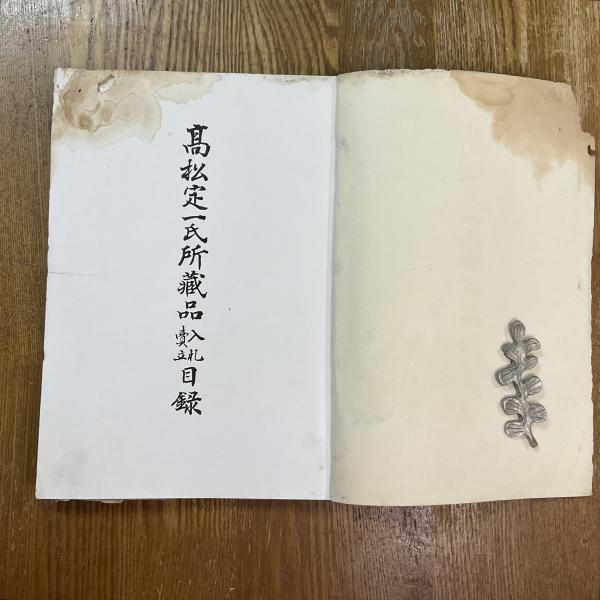 髙松定一氏所藏品入札賣立目録